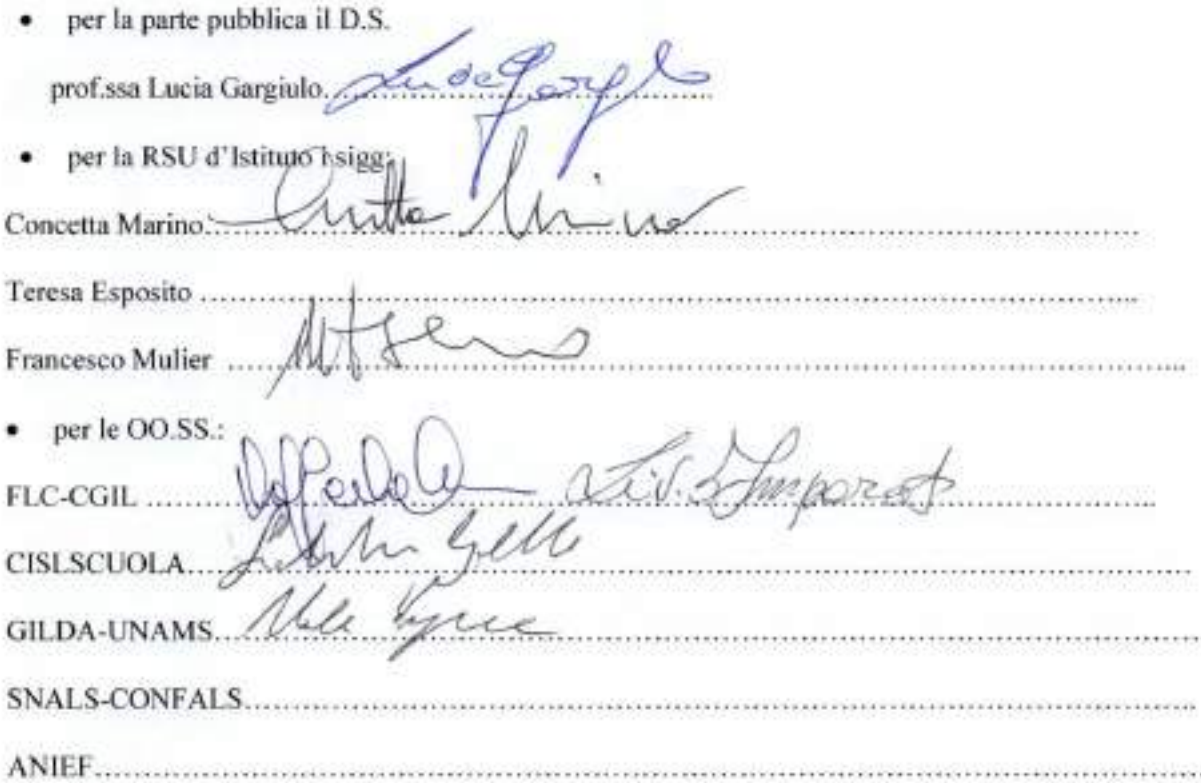 • per la parte pubblica il D.S.
prof.ssa Lucia Gargiulo....................................................
• per la RSU d'Istituto i sigg:
Concetta Marino....................................................
Teresa Esposito ....................................................
Francesco Mulier ....................................................
• per le OO.SS.:
FLC-CGIL ....................................................
CISLSCUOLA....................................................
GILDA-UNAMS....................................................
SNALS-CONFALS....................................................
ANIEF....................................................